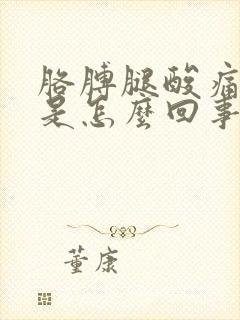 胳膊腿酸痛
是怎麼回事
董康